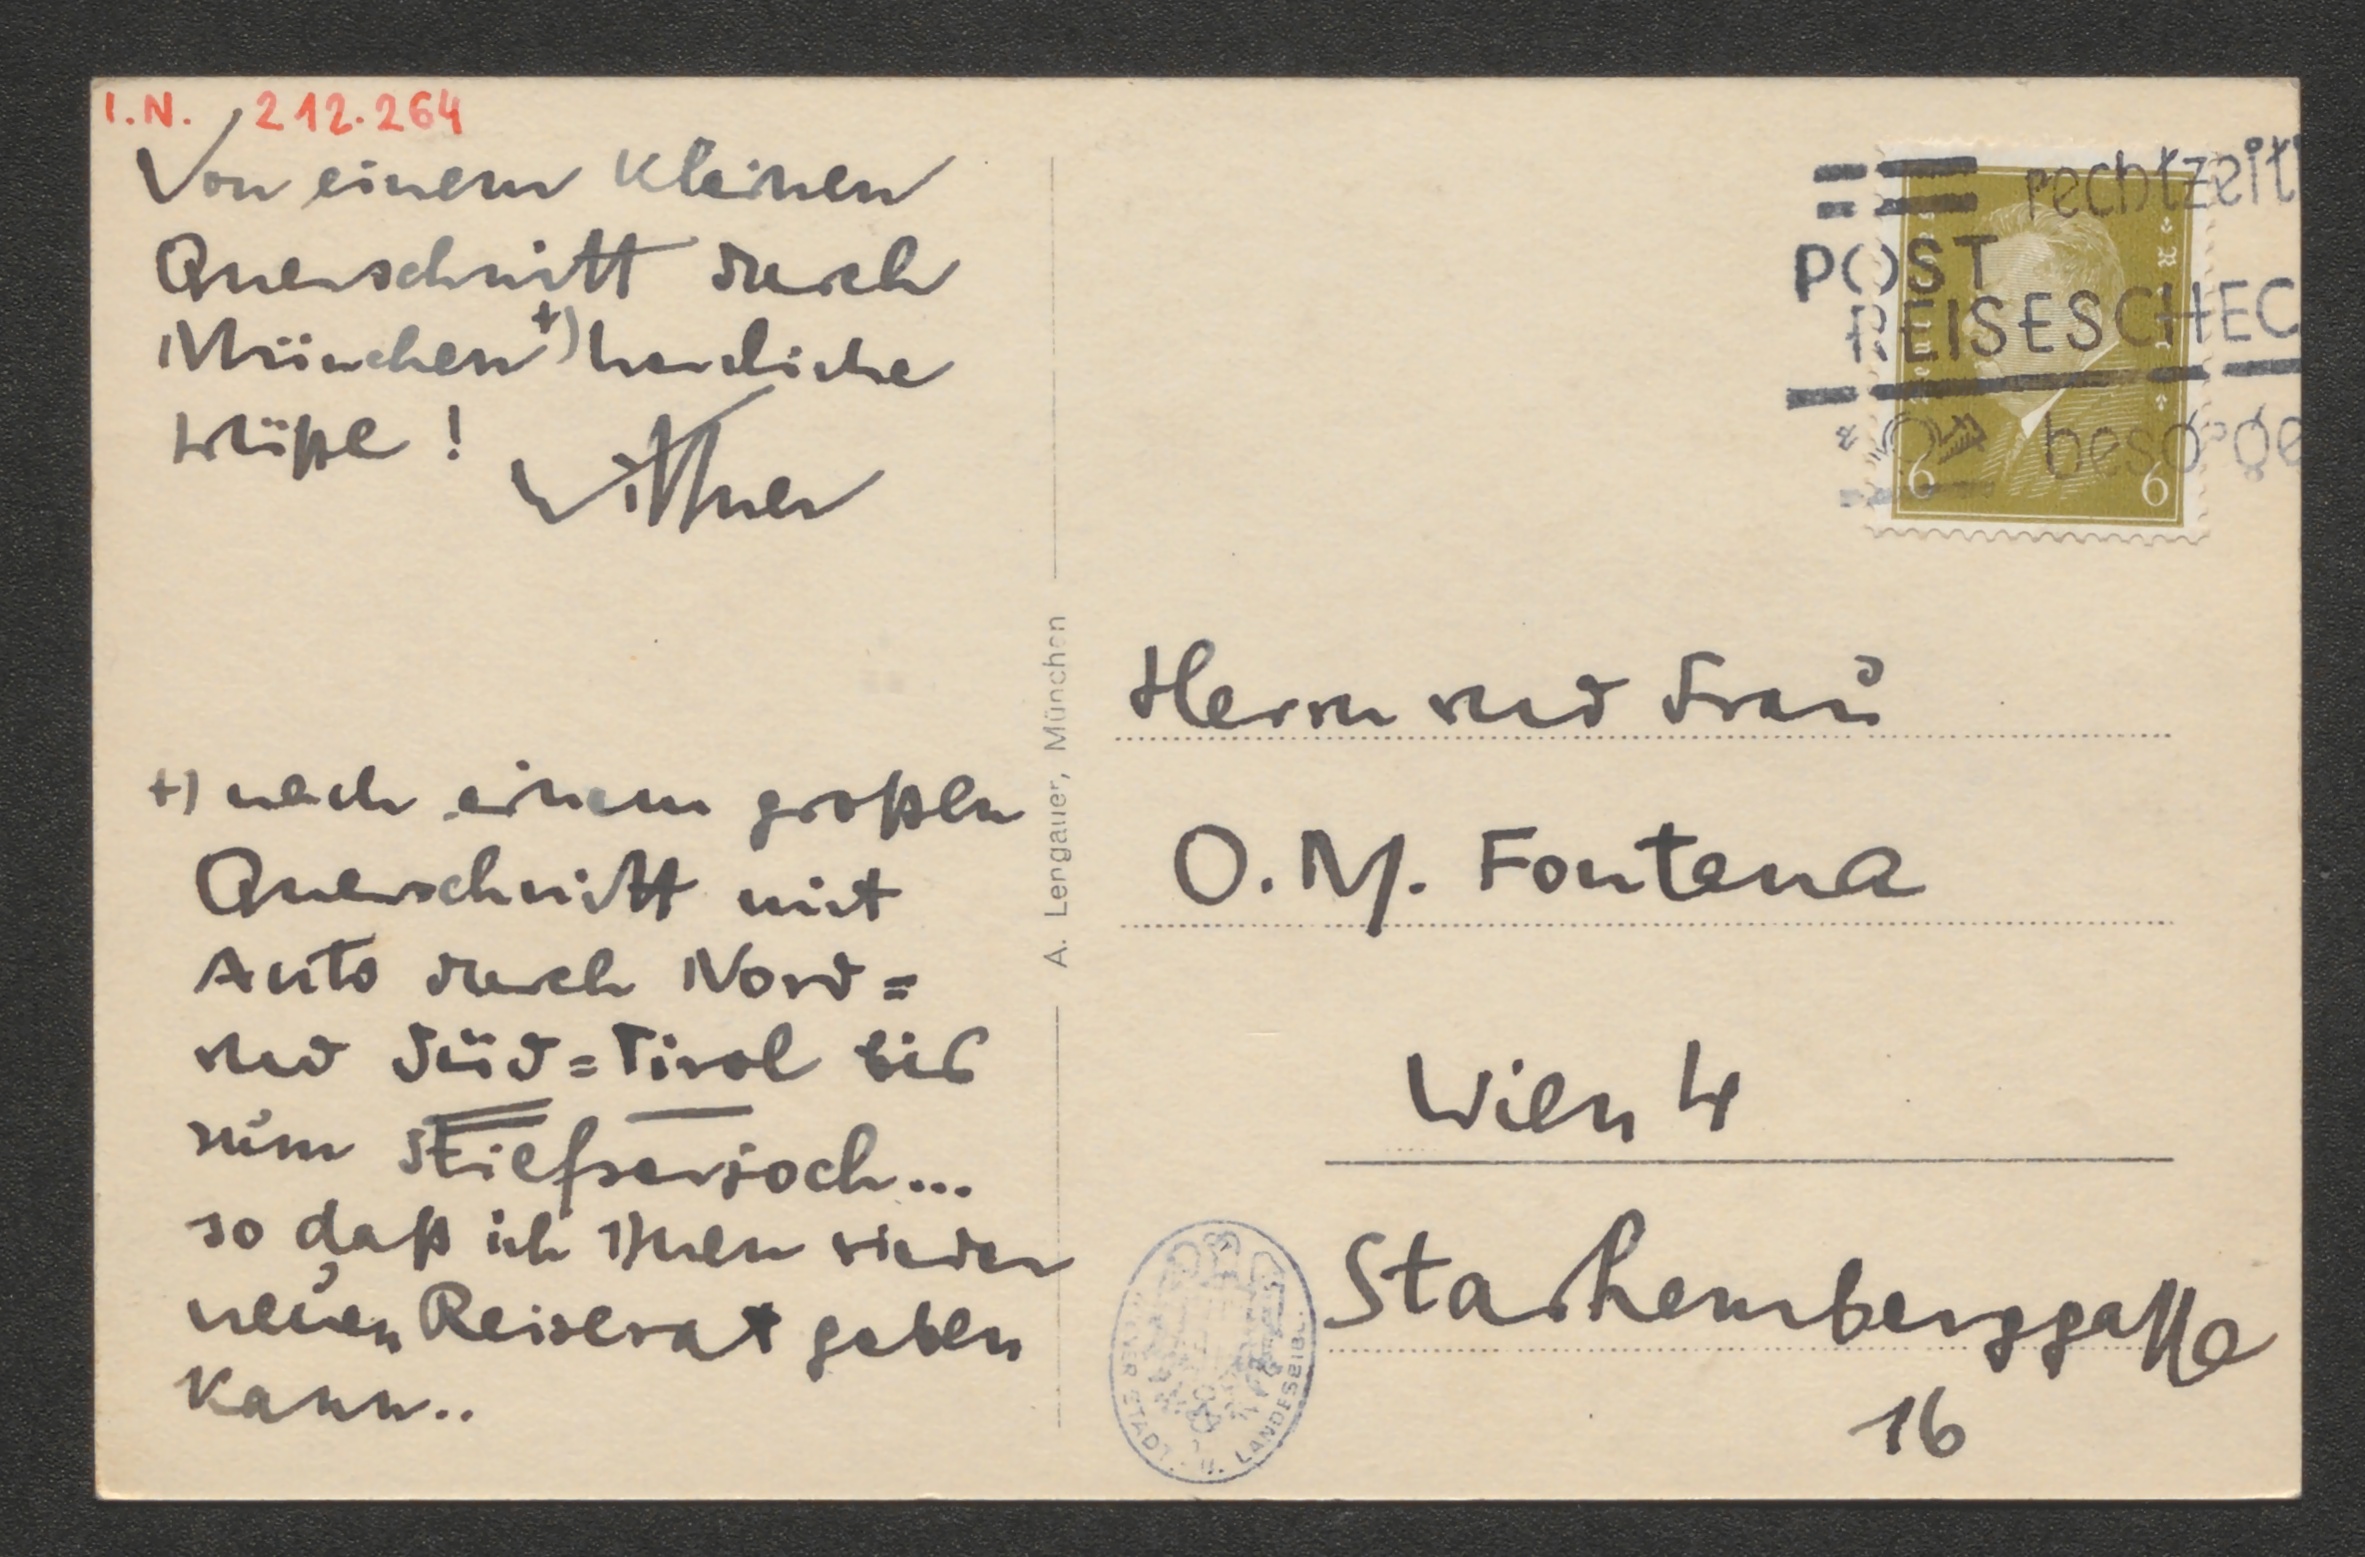 I.N. 212.264
Von einem kleinen
Querschnitt durch
München +) herzliche
Grüße!
Wittner
+) nach einem großen
Querschnitt mit
Auto durch Nord=
und Süd=Tirol bis
zum Stilfserjoch...
so daß ich Ihnen wieder
neuen Reiserat geben
kann..
A. Lengauer, München
rechtzeit
POST
REISESCHEC
besorge
6 6
Herrn und Frau
O. M. Fontana
Wien 4
Starhemberggasse
16
STADT- U. LANDESBIBL.